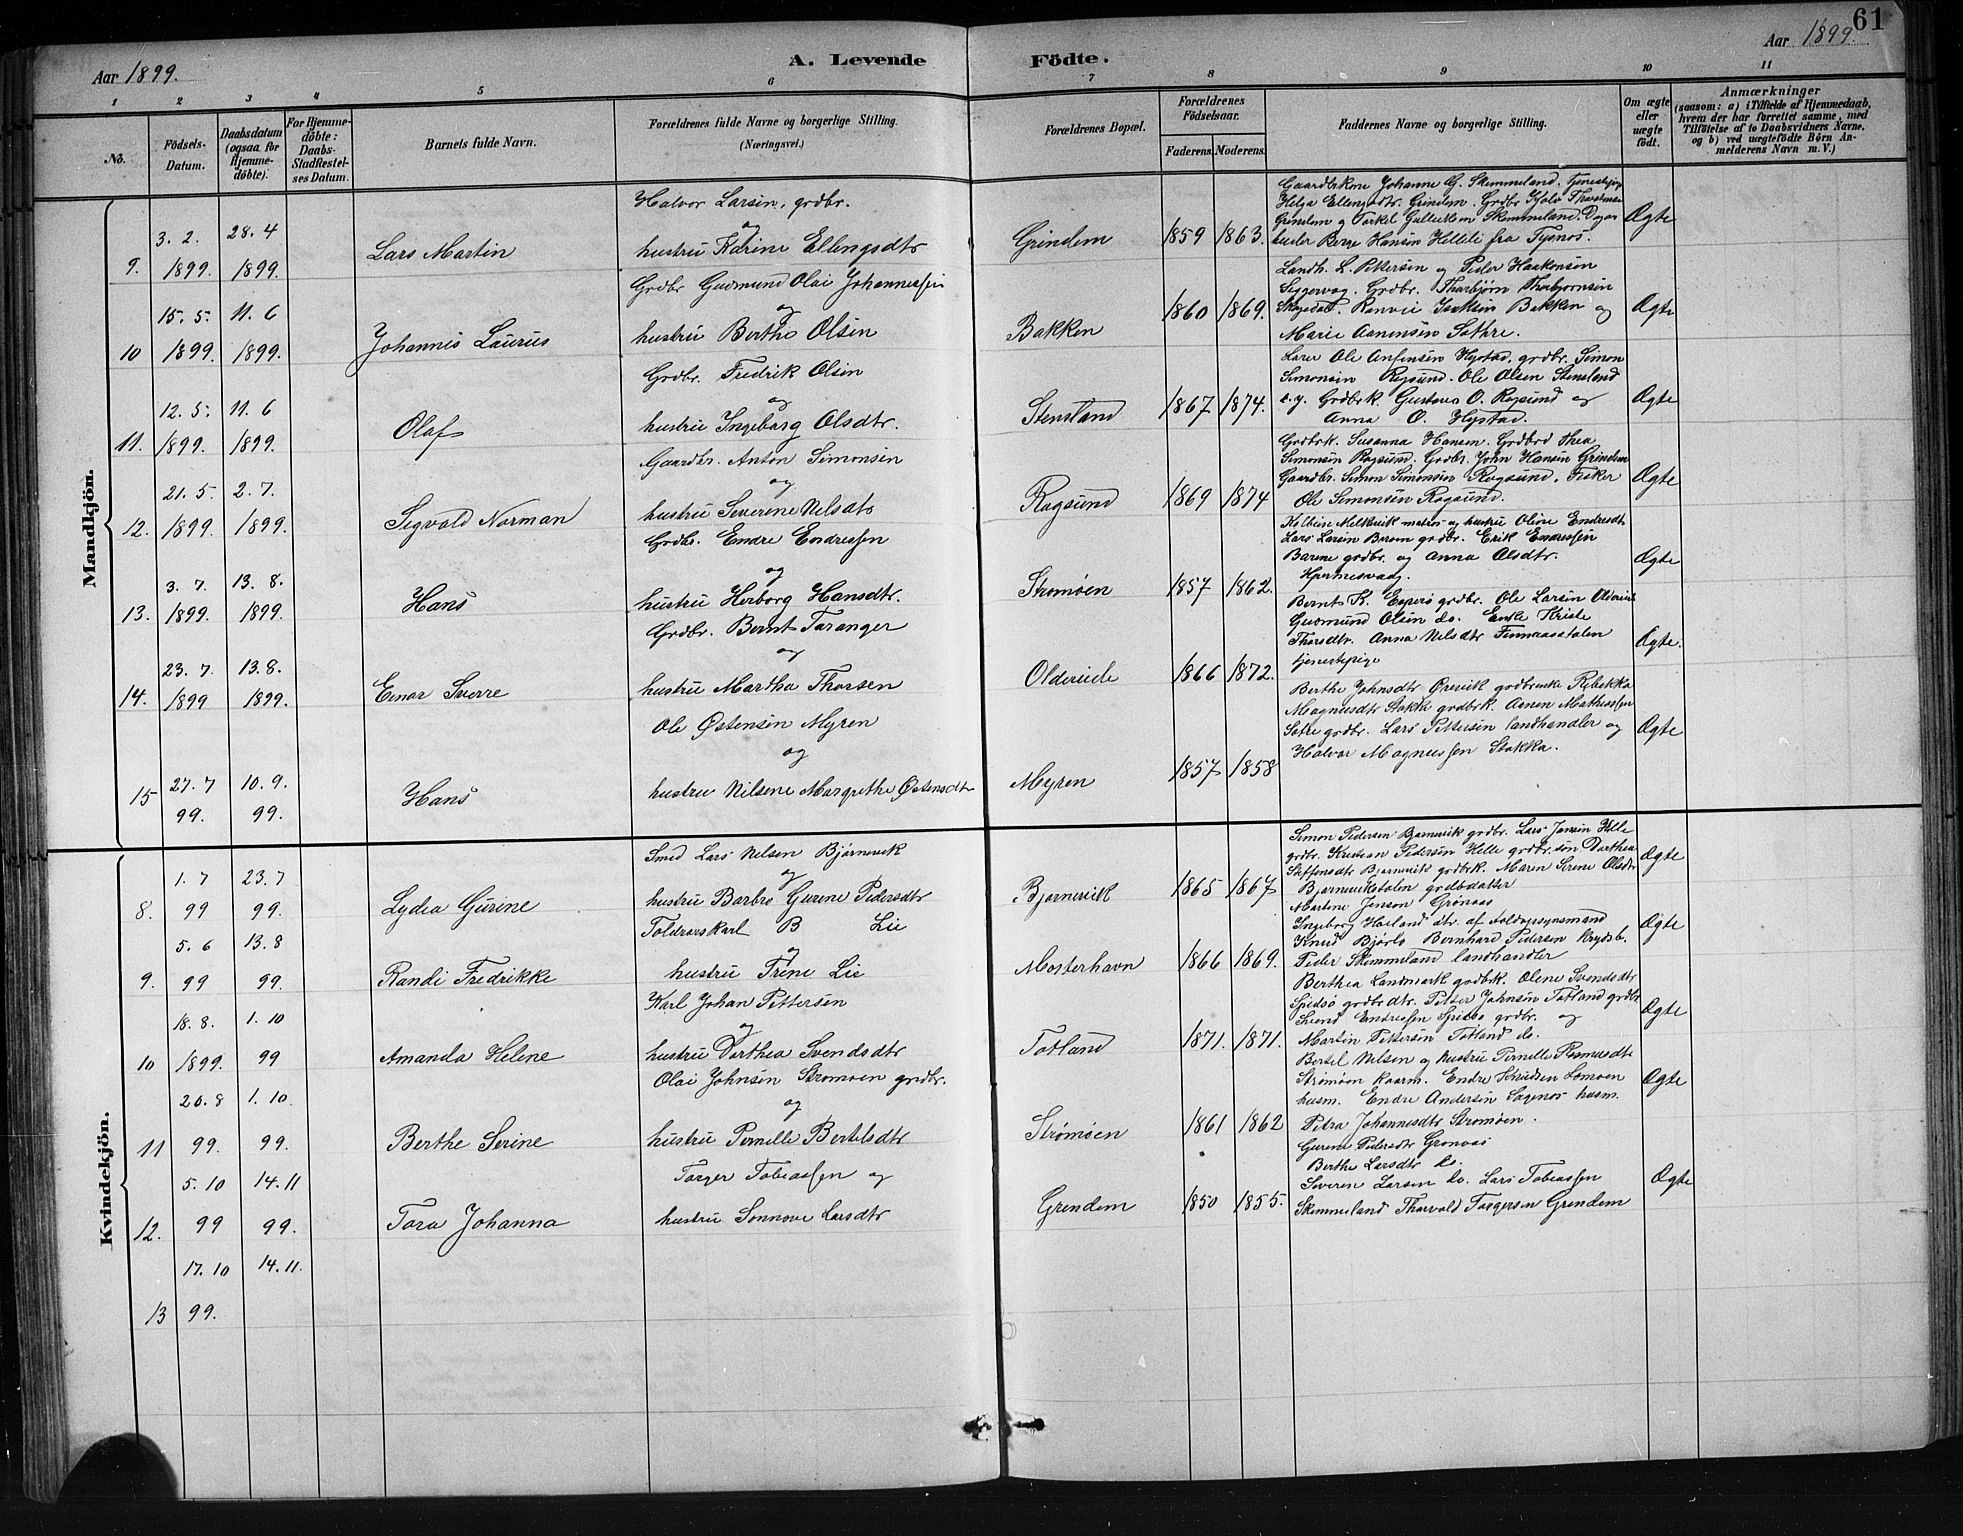 61
Aar 1899.
A. Levende Födte.
Aar 1899.
1 2 3 4 5 6 7 8 9 10 11
No.
Födsels-Datum.
Daabsdatum (ogsaa for Hjemme-döbte).
For Hjemme-döbte: Daabs-Stadfæstel-ses Datum.
Barnets fulde Navn.
Forældrenes fulde Navne og borgerlige Stilling.
(Næringsvei.)
Forældrenes Bopæl.
Forældrenes Födselsaar.
Faderens. Moderens.
Faddernes Navne og borgerlige Stilling.
Om ægte eller uægte födt.
Anmærkninger
(saasom: a) i Tilfælde af Hjemmedaab, hvem der har forrettet samme, med Tilföielse af to Daabsvidners Navne, og b) ved uægtefödte Börn An-melderens Navn m. V.)
Mandkjön.
9. 3. 2. 1899. 28. 4 1899.
Lars Martin
Halvor Larsen, grdbr.
og
hustru Karine Ellengsdtr
Grindem
1859 1863.
Gaardbrkone Johanne G. Skimmeland. Tjenestepige
Helga Ellengsdtr. Grindem. Grdbr
Grindem og Torkel Gullicksen Skimmeland.
Berge Hansen fra Tysnes.
Ægte
10 15. 5. 1899. 11. 6 1899.
Johannes Laurus
Grdbr Gudmund Olai Johannessen
og
hustru Berthe Olsen
Bakken
1860 1869.
Landh. L. Pettersen og Peder Haakonsen
Grdbr. Thorbjørn Thorbjørnsen
Isaksen Bakken og
Marie Aanensen Sothre.
Ægte
11. 12. 5. 1899. 11. 6 1899.
Olaf
Grdbr. Fredrik Olsen
og
hustru Ingeborg Olsdtr.
Stensland
1867 1874.
Lærer Ole Hystad, grdbr. Simon
Simonsen Røgsund. Ole Olsen Stensland
Grdbrk Gustava O. Røgsund og
Anna O. Hystad.
Ægte
12. 21. 5. 1899. 2. 7. 1899.
Sigvald Norman
Gaardbr. Anton Simonsen
og
hustru Severine Nilsdtr
Røgsund
1869 1874
Grdbrk. Susanna Hansen. Thea
Simonsen Røgsund. Grdbr. John Hansen Grindem
Gaardbr. Simon Simonsen Røgsund. Fisker
Ole Simonsen Røgsund.
Ægte
13. 3. 7. 1899. 13. 8. 1899.
Hans
Grdbr. Endre Endressen
og
hustru Herborg Hansdtr.
Strømøen
1857 1862.
Melkevik matros og hustru Oline Endresdtr
Lars Larsen grdbr. Erik Endressen
grdbr. og Anna Olsdtr.
Ægte
14. 23. 7. 1899 13. 8. 1899.
Einar Sverre
Grdbr. Bernt Taranger
og
hustru Martha Thorsen
Oldervide
1866 1872.
Bernt K. Espevø grdbr. Ole Larsen
Gudmund Olsen do. Enke Kristi
Thorsdtr. Anna Nelsdtr
tjenestepige
Ægte.
15 27. 7 99. 10. 9. 99.
Hans
Ole Østensen Myren
og
hustru Nilsene Margrethe Østensdtr
Myren
1857 1858
Berthe Johnsdtr Ørevik Rebekka
Magnusdtr Stokka grdbrk. Aanen Mathiassen
Sotre grdbr. Lars Pettersen landhandler og
Halvor Magnussen Stokka.
Ægte
Kvindekjön.
8. 1. 7 99 23. 7 99.
Lydia Gurine
Smed Lars Nelsen Bjørnevik
og
hustru Barbro Gurene Pedersdtr
Bjørnevik
1865 1867
Simon Pedersen Bjørnevik grdbr. Lars Jensen Helle
grdbr. Kristian Pedersen Helle grdbr.søn Dorthea
Steffensdtr Bjørnevik grdbrk. Maren Serene Olsdtr
Bjørneviks grdbrdatter
Ægte
9. 5. 6 99 13. 8 99.
Randi Fredrikke
Toldrorskarl B Lie
og
hustru Trine Lie
Mosterhavn
1866 1869.
Martine Jenson Grønaas
Ingeborg Haaland dtr. af Toldopsynsmand
Knud Bjørlo Bernhard Pedersen Krydsb.
Peder Skimmeland landhandler
Ægte
10 18. 8. 1899. 1. 10 99
Amanda Helene
Karl Johan Pettersen
og
hustru Dorthea Svendsdtr
Totland
1871. 1871.
Berthea Landmark grdbrk. Olene Svendsdtr
Spidsø grdbrdtr. Petter Johnsen Totland grdbr
Svend Endressen Spidsø grdbr. og
Martin Pettersen Totland do.
Ægte
11 26. 8 99. 1. 10. 99.
Berthe Serine
Olai Johnsen Strømøen grdbr.
og
hustru Pernille Bertelsdtr
Strømøen
1861 1862
Bertel Nelsen og hustru Pernelle Rasmusdtr
Strømøen kaarm. Endre Knudsen Lomoen
husm. Endre Andersen Sagenes husm.
Petra Johannesdtr Strømøen.
Ægte
12. 5. 10 99 14. 11 99.
Tora Johanna
Torger Tobiassen og
hustru Sønnove Larsdtr
Grendem
1850 1855.
Gurene Pedersdtr Grønaas
Berthe Larsdtr do.
Severen Larsen do. Lars Tobiassen
Skimmeland Thorvald Torgersen Grendem
Ægte
13 17. 10 99. 14. 11.